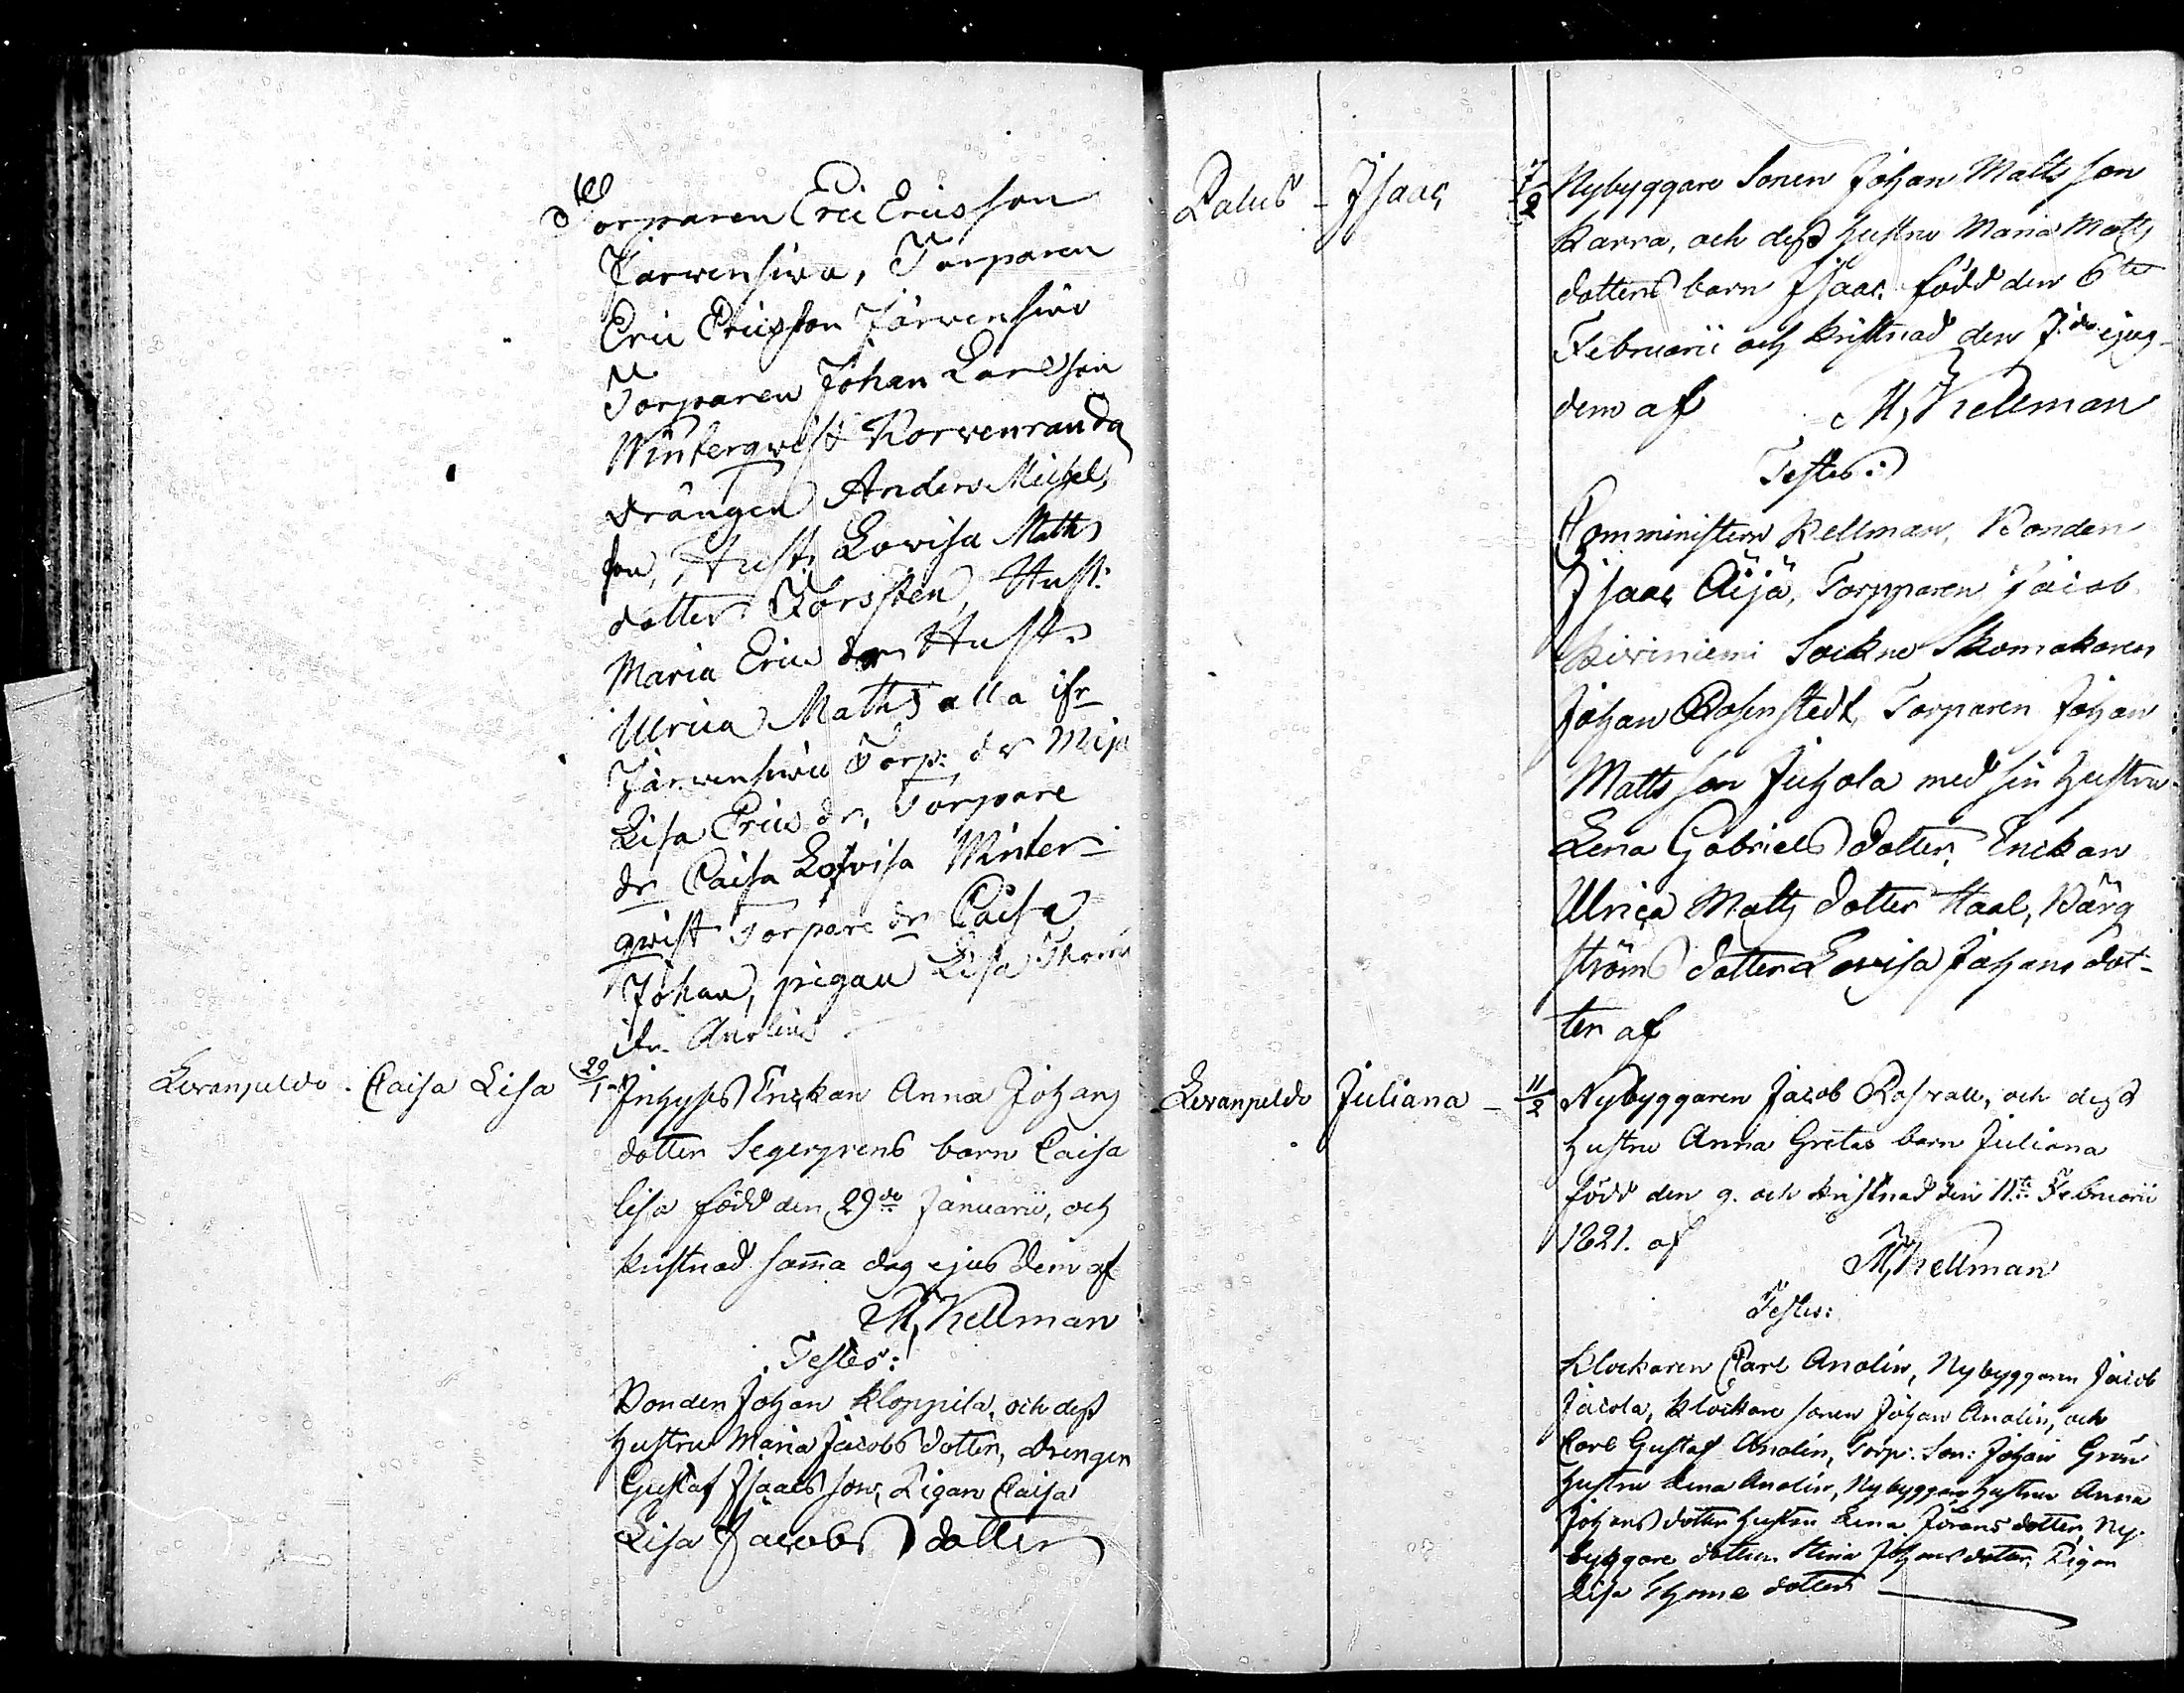 Torparen Eric Ericsson
Järvensivu, Torparen
Eric Ericsson Järvensivu
Torparen Johan Carlsson
Winterqwist Korvenranda
drängen Anders Michels
son, Hust. Lovisa Maths
dotter Forssten, Hust:
Maria Erics dr Hustr
Ulrica Maths alla ifr
Järvensivu Torp: dr Maja
Lisa Erics dr, Torpare
dr Caisa Lovisa Winter-
qwist Torpare dr Caisa
Johan, pigan Lisa Thom
ifr. Anolin
Levanpeldo - Caisa Lisa 29/1 Inhyses Enkan Anna Johans
dotter Segergrens barn Caisa
Lisa född den 29de Januarii, och
kristnad samma dag ejusdem af
M. Kellman
Testes:
Bonden Johan Kloppila, och dess
hustru Maria Jacobs dotter, drengen
Gustaf Isaacs son, Pigan Caisa
Lisa Jacobs dotter
Palus - Isaac 7/2 Nybyggare Sonen Johan Matts son
Karra, och dess hustru Maria Matts
dotters barn Isaac född den 6te
Februarii och kristnad den 7de ejus-
dem af M. Kellman
Testes:
Comministern Kellman, Bonden
Isaac Äijä, Torpparen Jacob
Kiviniemi Sockne Skomakaren
Johan Rosenstedt, Torparen Johan
Matts son Juhola med sin hustru
Lena Gabriels dotter, Enckan
Ulrica Matts dotter Haal, Bärg
ströms dotter Lovisa Johans dot-
ter af
Levanpeldo Juliana - 11/2 Nybyggaren Jacob Rosvall, och dess
hustru Anna Gretas barn Juliana
född den 9. och kristnad den 11te Februarii
1821. af M. Kellman
Testes:
Klockaren Carl Anolin, Nybyggaren Jacob
Jacola, Klockare sonen Johan Anolin, och
Carl Gustaf Anolin, Torp: Son: Johan Grön
hustru Lena Anolin, Nybyggare hustrun Anna
Johans dotter hustru Lena Jörans dotter, Ny-
byggare dottern Stina Johans dotter, Pigan
Lisa Thomas dotter